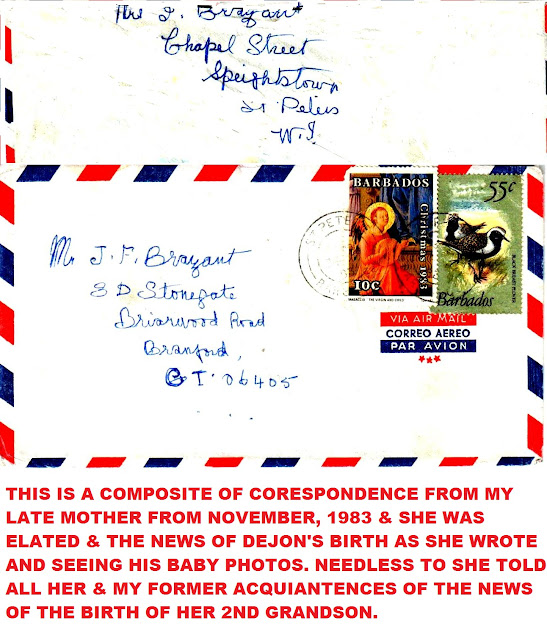 Mrs I. Brayant
Chapel Street
Speightstown
St Peters
W.I.
Mr J. F. Brayant
3 D Stonegate
Briarwood Road
Branford,
CT. 06405
BARBADOS
Christmas 1983
10c
THE VIRGIN AND CHILD
55c
Barbados
ST. PETER
VIA AIR MAIL
CORREO AEREO
PAR AVION
THIS IS A COMPOSITE OF CORESPONDENCE FROM MY
LATE MOTHER FROM NOVEMBER, 1983 & SHE WAS
ELATED & THE NEWS OF DEJON'S BIRTH AS SHE WROTE
AND SEEING HIS BABY PHOTOS. NEEDLESS TO SHE TOLD
ALL HER & MY FORMER ACQUIANTENCES OF THE NEWS
OF THE BIRTH OF HER 2ND GRANDSON.